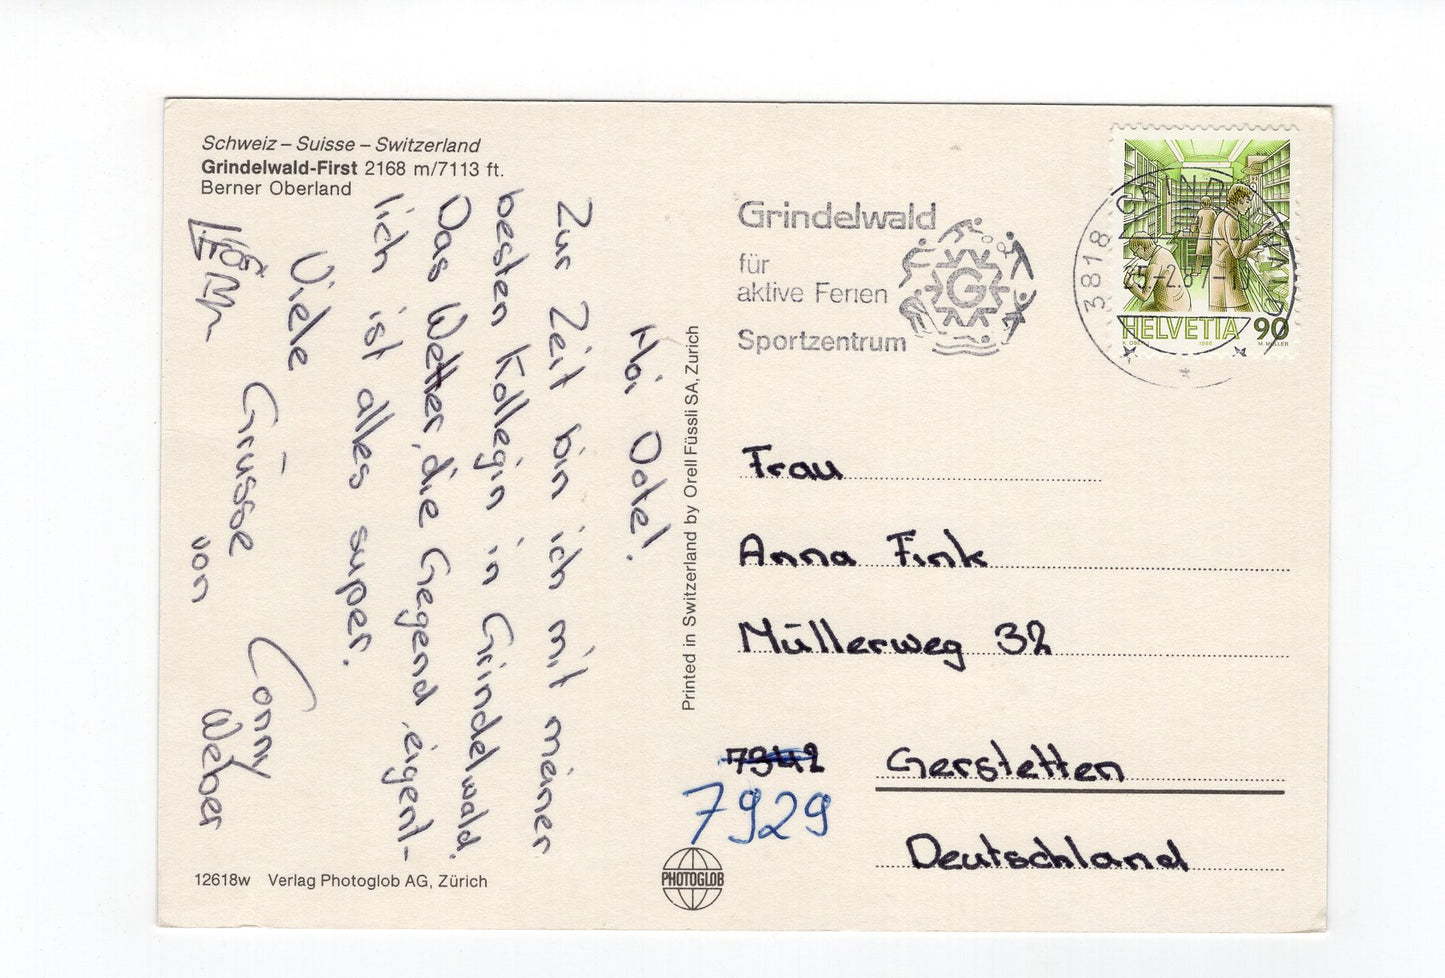 Schweiz – Suisse – Switzerland
Grindelwald-First 2168 m/7113 ft.
Berner Oberland
Hoi Dote!
Zur Zeit bin ich mit meiner
besten Kollegin in Grindelwald.
Das Wetter, die Gegend, eigent-
lich ist alles super.
Viele Grüsse
von
Conny
Weber
12618w Verlag Photoglob AG, Zürich
Printed in Switzerland by Orell Füssli SA, Zurich
PHOTOGLOB
Grindelwald
für
aktive Ferien
Sportzentrum
G
3818 GRINDELWALD
HELVETIA 90
1986 M. MÜLLER
Frau
Anna Fink
Müllerweg 32
7942 Gerstetten
7929
Deutschland